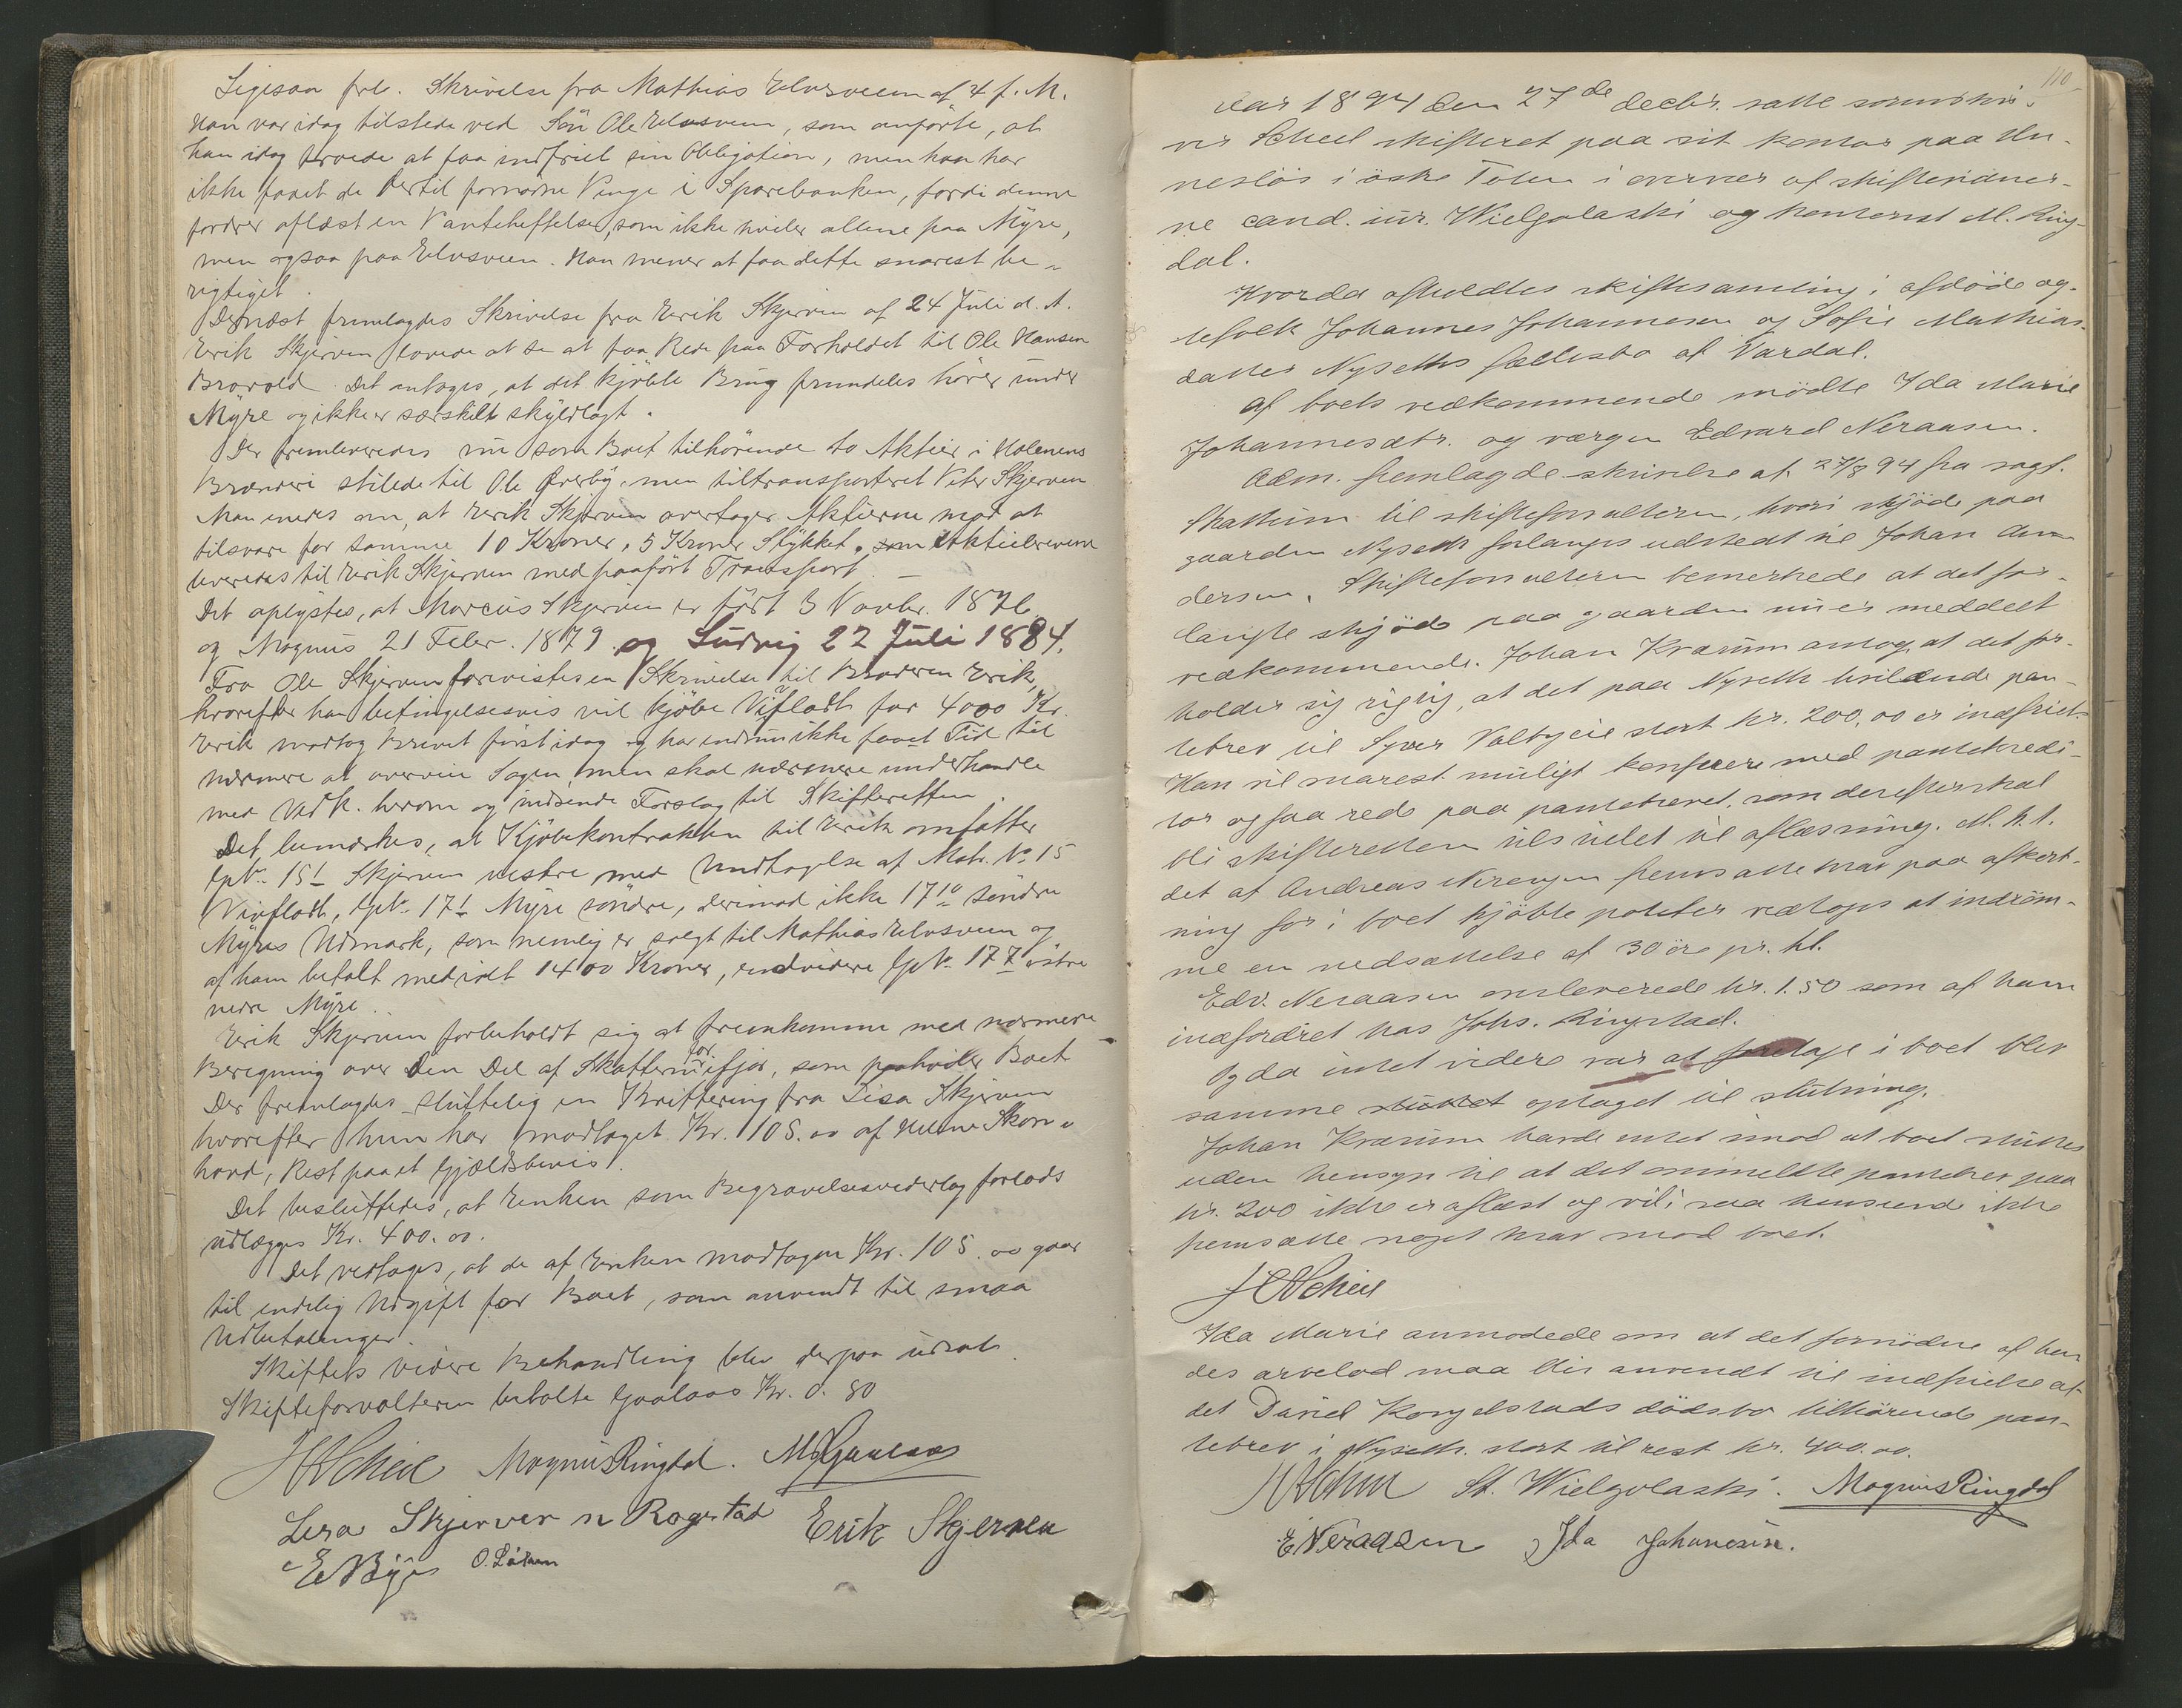 Ligesaa frl. Skrivelse fra Mathias Elvsveen af 4 f. M.
Han var idag tilstede ved Sön Ole Elvsveen, som anförte, at
han idag troede at faa indfriet sin Obligation, men han har
ikke faaet de dertil fornødne Penge i Sparebanken, fordi denne
fordrer aflæst en Panteheftelse, som ikke hviler allene paa Myre,
men ogsaa paa Elvsveen. Han mener at faa dette snarest be-
rigtiget.
Dernæst fremlagdes Skrivelse fra Erik Skjerven af 24 Juli d. A.
Erik Skjerven lovede at se at faa Rede paa Forholdet til Ole Hansen
Bravold. Det antages, at det kjöbte Brug fremdeles hörer under
Myre og ikke er særskilt skyldlagt.
Der fremleveredes nu som Boet tilhörende to Aktier i Holenens
Brænderi stilede til Ole Överby, men tiltransporteret Peter Skjerven
Man enedes om, at Erik Skjerven overtager Aktierne mod at
tilsvare for samme 10 Kroner, 5 Kroner Stykket, som Aktiebrevene
leveredes til Erik Skjerven med paafört Transport. —
Det oplystes, at Marcus Skjerven er födt 3 Novbr. 1876
og Magnus 21 Febr. 1879 og Ludvig 22 Juli 1884.
Fra Ole Skjerven forevistes en Skrivelse til Broderen Erik,
hvorefter han betingelsesvis vil kjöbe Vifladt for 4000 Kr.
Erik modtog Brevet först idag og har endnu ikke faaet Tid til
nærmere at overveie Sagen, men skal nærmere underhandle
med Vedk. herom og indsende Forslag til Skifteretten.
Det bemærkes, at Kjöbekontrakten til Erik omfatter
Gpl. 15 1 Skjerven vestre med Undtagelse af Matr. No 15
Vivfladt, Gpl. 17 1 Myre söndre, derimod ikke 17 10 söndre
Myres Udmark, som nemlig er solgt til Mathias Elvsveen og
af ham betalt med idt 1400 Kroner, endvidere Gpl. 17 7 östre
nedre Myre.
Erik Skjerven forbeholdt sig at fremkomme med nærmere
Beregning over den Del af Skatterne for ifjor, som paahviler Boet
Der fremlagdes sluttelig en Kvittering fra Lisa Skjerven
hvorefter hun har modtaget Kr. 105.00 af Skon-
hovd, Rest paa et Gjældsbevis.
Det besluttedes, at Enken som Begravelsesvederlag forlods
udlægges Kr. 400.00.
Det vedtages, at de af Enken modtagne Kr. 105.00 gaar
til endelig Udgift for Boet, som anvendt til smaa
Udbetalinger.
Skiftets videre Behandling blev derpaa udsat.
Skifteforvalteren betalte Gaalaas Kr. 0.80
HScheel Magnus Ringdal. M Gaalaas
Lesa Skjerven n Rogstad Erik Skjerven
E Bye O. Larsen
110
Aar 1894 den 27de decbr. satte sorenskri-
ver Scheel skifteret paa sit kontor paa Hu-
neslös i östre Toten i overvær af skiftevidner-
ne cand. iur. Wielgolaski og kontorist M. Ring-
dal.
Hvorda afholdtes skiftesamling i afdöde æg-
tefolk Johannes Johannesen og Sofie Mathias-
datter Nyseths fællesbo af Vardal.
Af boets vedkommende mödte Ida Marie
Johannesdtr. og værgen Edvard Neraasen.
Adm. fremlagde skrivelse af 27/8 94 fra sagf.
Skattum til skifteforvalteren, hvori skjöde paa
gaarden Nyseth forlanges udstedt til Johan An-
dersen. Skifteforvalteren bemerkede at det for-
langte skjöde paa gaarden nu er meddelt
vedkommende. Johan Kværum antog, at det for-
holder sig rigtig, at det paa Nyseth hvilende pan-
tebrev til Syver Valbyeie stort kr. 200,00 er indfriet.
Han vil snarest muligt konferere med pantekredi-
tor og faa rede paa pantebrevet, som derefter skal
bli skifteretten tilstillet til aflæsning. M. h. t.
det af Andreas fremsatte krav paa afkort-
ning for i boet kjöbte poteter vedtoges at indröm-
me en nedsættelse af 30 öre pr. hl.
Edv. Neraasen overleverede kr. 1.50 som af ham
indfordret hos Johs. Ringstad.
Og da intet videre var at foretage i boet blev
samme sluttet optaget til slutning.
Johan Kværum havde intet imod at boet sluttes
uden hensyn til at det ommeldte pantebrev paa
kr. 200 ikke er aflæst og vil i saa henseende ikke
fremsætte noget krav mod boet.
HScheel
Ida Marie anmodede om at det fornödne af hen-
des arvelod maa blir anvendt til indfrielse af
det Daniel Kongelstads dödsbo tilhörende pan-
tebrev i Nyseth stort til rest kr. 400.00.
HScheel St. Wielgolaski. Magnus Ringdal
E Neraasen Ida Johanesen.